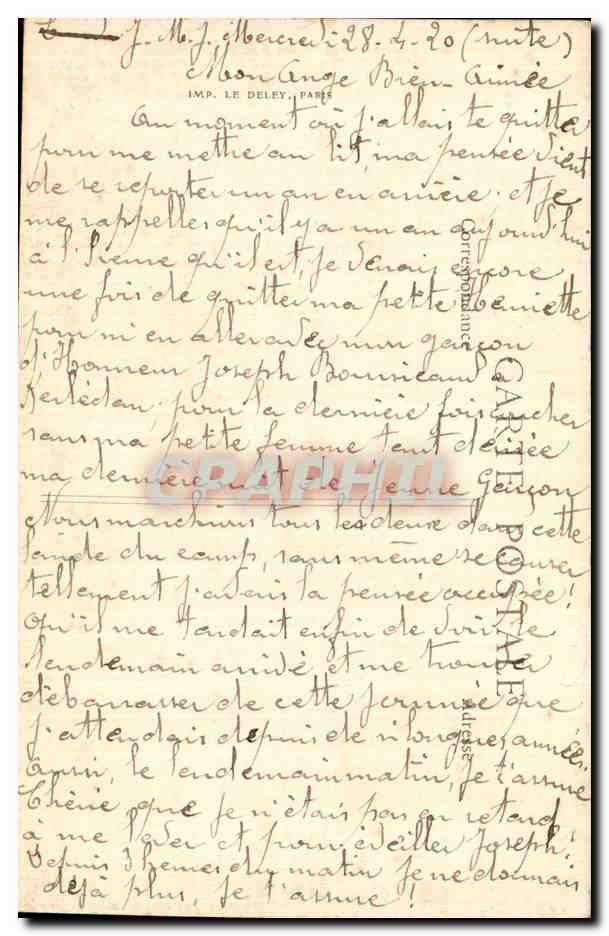 J. M. J. Mercredi 28-4-20 (suite)
Mon Ange Bien-Aimée
IMP. LE DELEY, PARIS
Au moment où j'allais te quitter
pour me mettre au lit, ma pensée vient
de se reporter un an en arrière et je
me rappelles qu'il y a un an aujourd'hui
à l'heure qu'il est, je venais encore
une fois de quitter ma petite
pour m'en aller avec mon garçon
d'Honneur Joseph à
pour la dernière fois coucher
sans ma petite femme tant désirée
ma dernière nuit de Jeune Garçon
Nous marchions tous les deux dans cette
lande du camp, sans même se causer
tellement j'avais la pensée occupée!
Qu'il me tardait enfin de voir le
lendemain arrivé et me trouver
débarrasser de cette journée que
j'attendais depuis de si longues années
Aussi, le lendemain matin, je t'assure
Chérie que je n'étais pas en retard
à me lever et pour éveiller Joseph,
Depuis 3 heures du matin je ne dormais
déjà plus, je t'assure!
Correspondance
CARTE POSTALE
Adresse
CPAPHIL